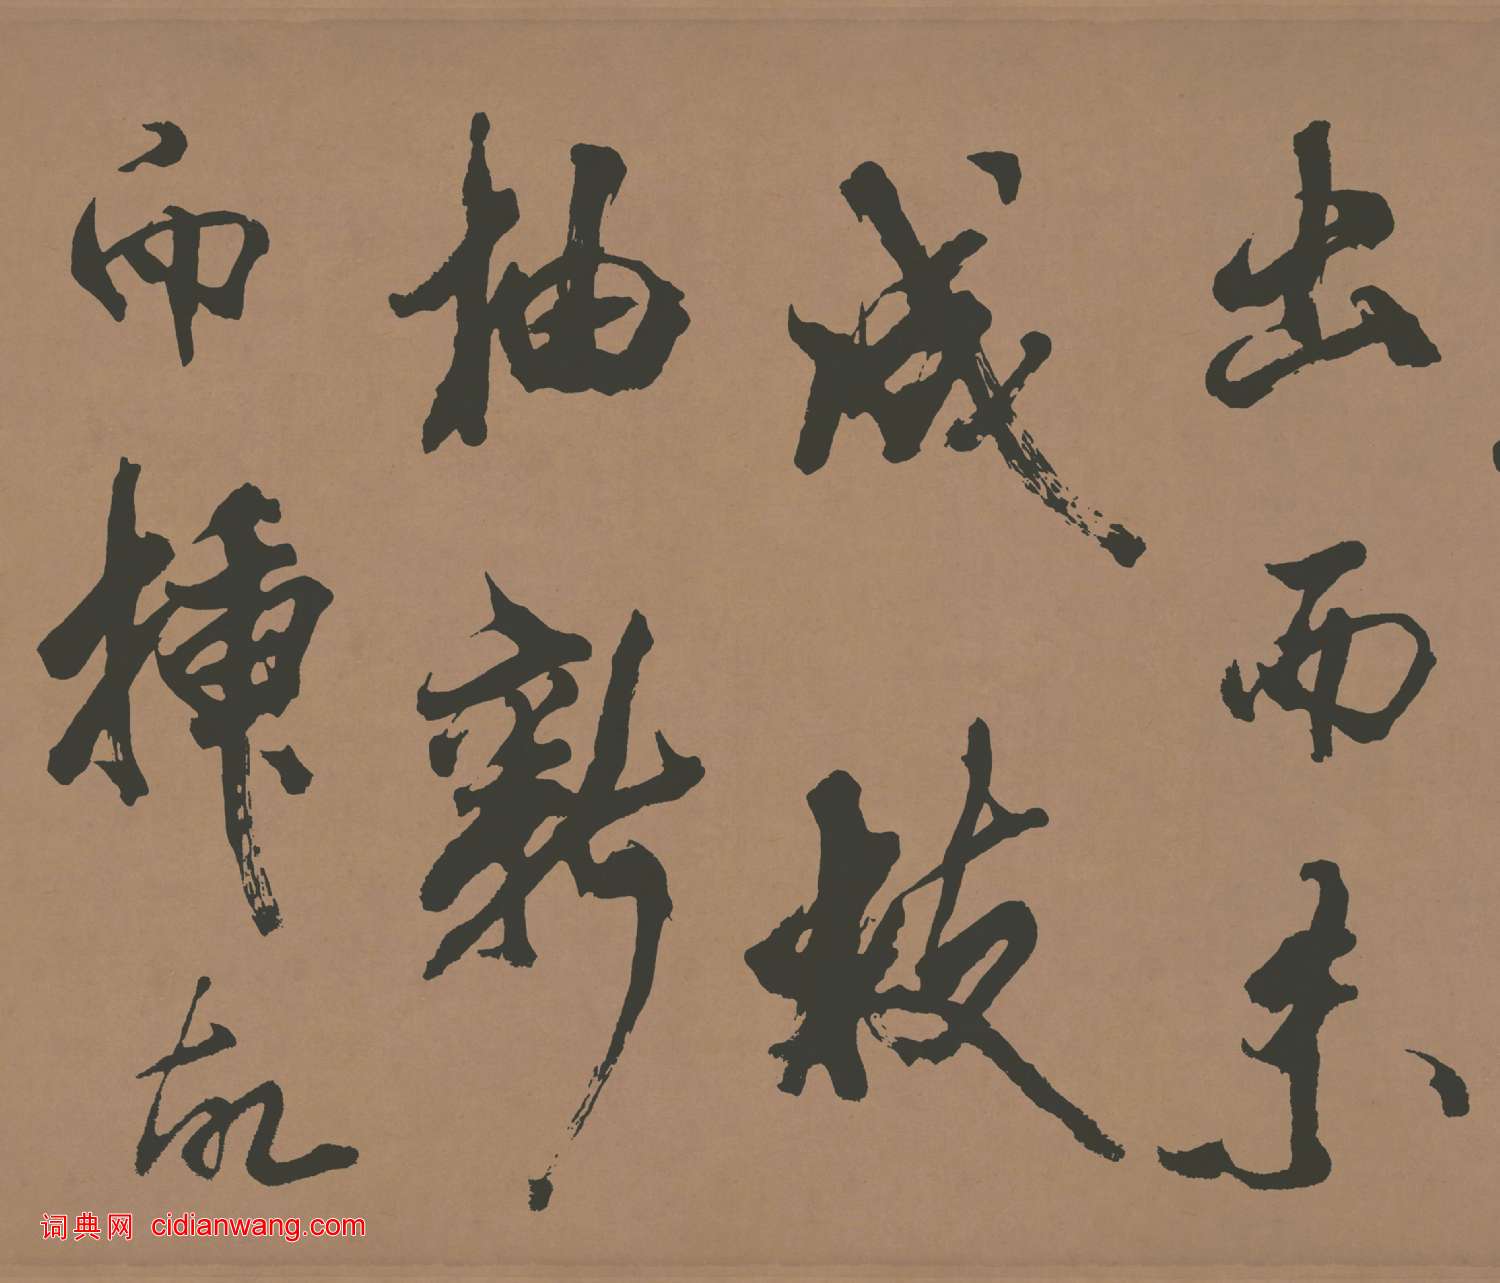 出而未
成枝
抽新
而故
词典网 cidianwang.com